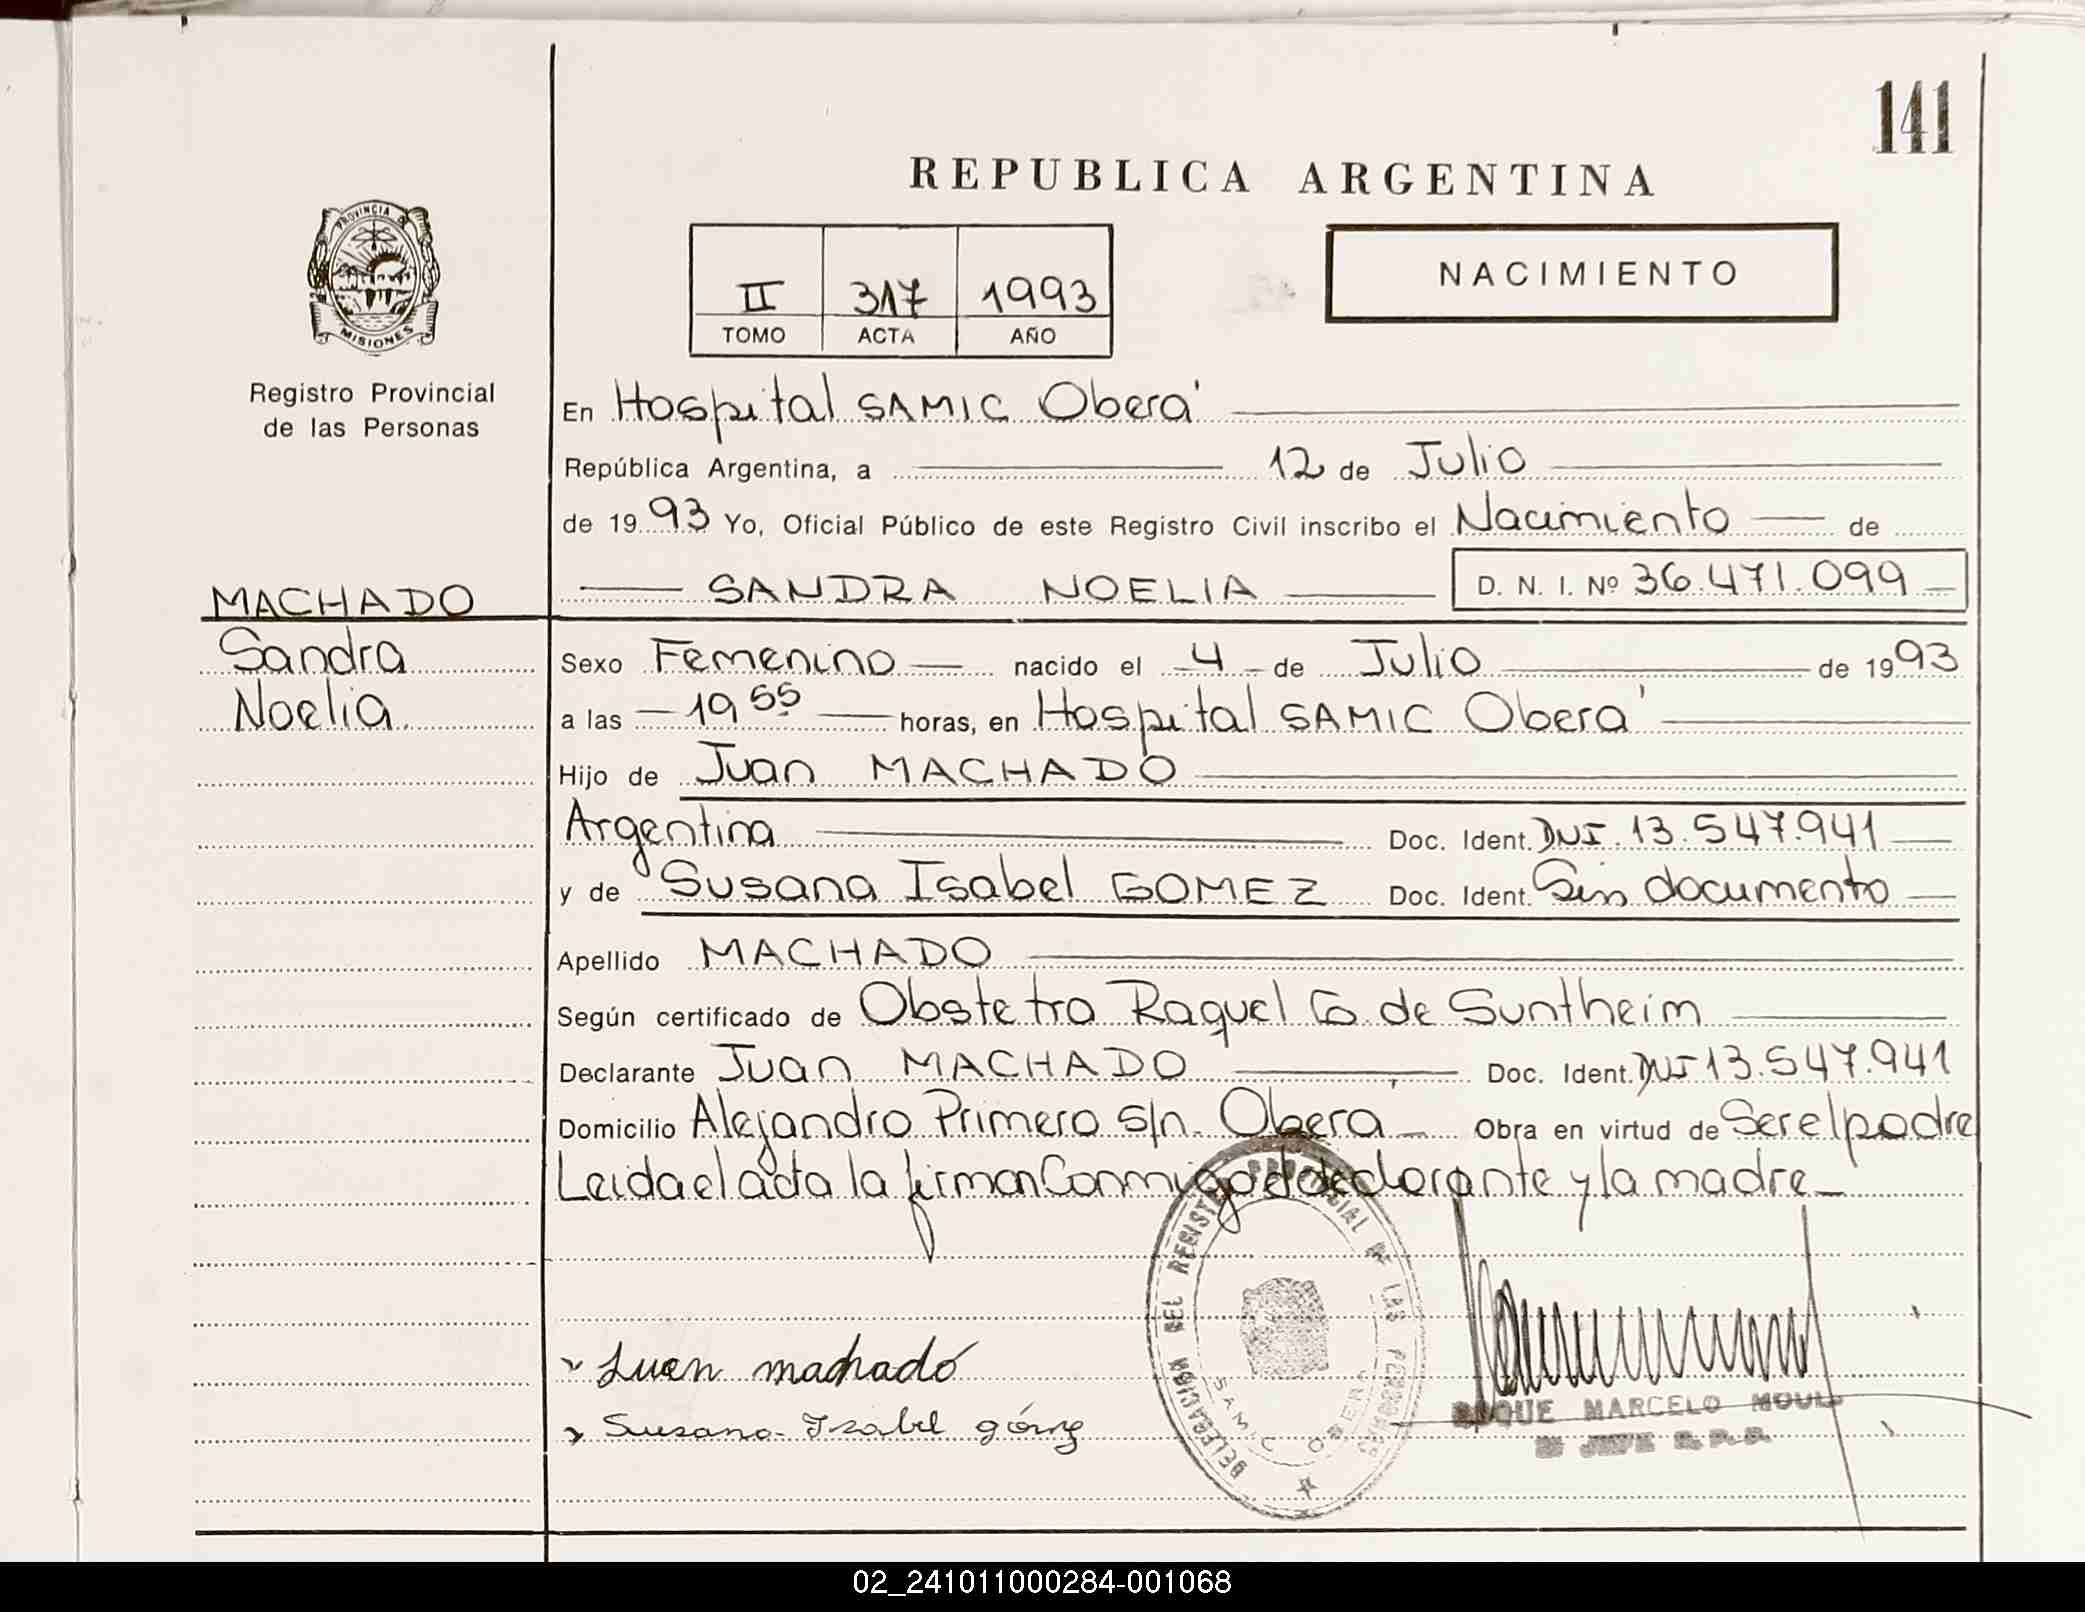 141
REPUBLICA ARGENTINA
PROVINCIA DE
MISIONES
Registro Provincial
de las Personas
II 317 1993
TOMO ACTA AÑO
NACIMIENTO
En Hospital SAMIC Oberá
República Argentina, a 12 de Julio
de 1993 Yo, Oficial Público de este Registro Civil inscribo el Nacimiento de
SANDRA NOELIA D. N. I. Nº 36.471.099
MACHADO
Sandra
Noelia
Sexo Femenino nacido el 4 de Julio de 1993
a las 19 55 horas, en Hospital SAMIC Oberá
Hijo de Juan MACHADO
Argentina Doc. Ident. DNI 13.547.941
y de Susana Isabel GOMEZ Doc. Ident. Sin documento
Apellido MACHADO
Según certificado de Obstetra Raquel G. de Suntheim
Declarante Juan MACHADO Doc. Ident. DNI 13.547.941
Domicilio Alejandro Primero s/n. Oberá Obra en virtud de Ser el padre
Leida el acta la firman Conmigo el declarante y la madre
DELEGACION DEL REGISTRO PROVINCIAL DE LAS PERSONAS
SAMIC OBERA
Juan machadó
Susana Izabel
ROQUE MARCELO
02_241011000284-001068